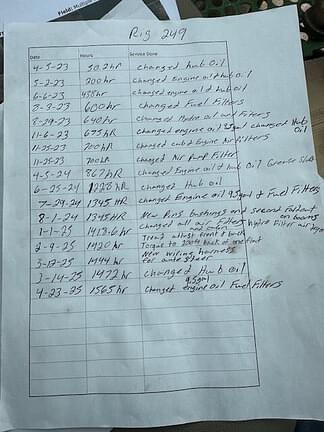 Field: Multiple
Rig 249
Date Hours Service Done
4-5-23 50.2hr Changed hub Oil
5-2-23 200hr Changed Engine oil & hub oil
6-6-23 458hr Changed engine oil & hub oil
600hr Changed Fuel Filters
8-29-23 640hr Changed Hydro oil and Filters
11-6-23 675hR Changed engine oil changed Hub Oil
11-25-23 700hR Changed cab & Engine air Filters
11-25-23 700hR Changed Air Pump Filter
4-5-24 867hR Changed Engine oil & hub Oil Grease
6-25-24 1228hR Changed Hub oil
7-29-24 1345HR Changed Engine oil 9.5gal & Fuel Filters
8-1-24 1345HR New Pins bushings and second foldout on booms
1-1-25 1418.6hr Changed all air Filters Hydro Filter air
and cabin
2-9-25 1420hr Tread front & back
Torque to back
3-12-25 1444hr New wiring harness
for auto steer
3-14-25 1472hr Changed Hub oil
4-23-25 1565hr Changed engine oil Fuel Filters
9.5gal